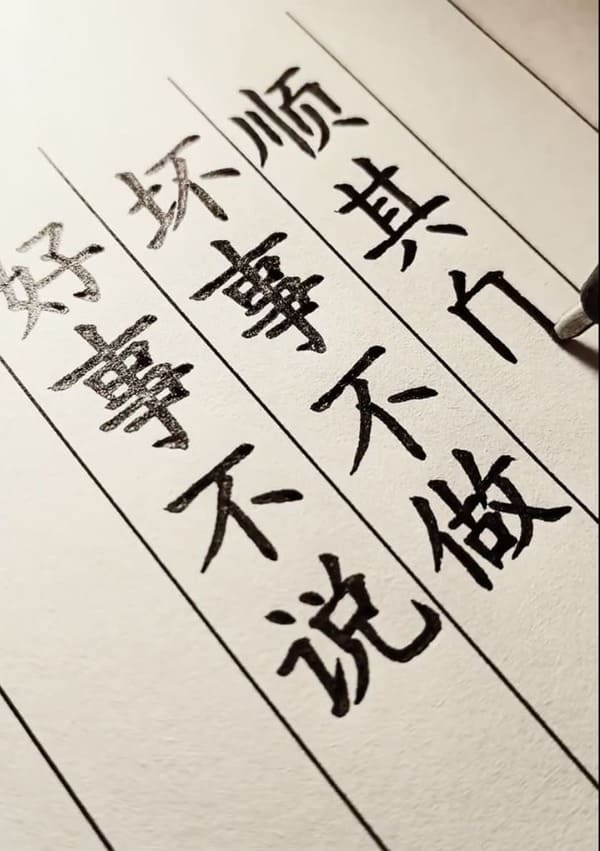 好事不说
坏事不做
顺其